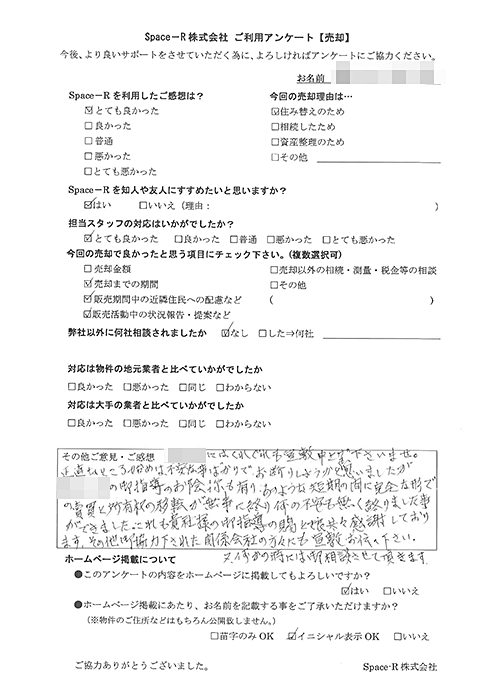 Space－R 株式会社 ご利用アンケート【売却】
今後、より良いサポートをさせていただく為に、よろしければアンケートにご協力ください。
お名前
Space－R を利用したご感想は？
☑とても良かった
□良かった
□普通
□悪かった
□とても悪かった
今回の売却理由は…
☑住み替えのため
□相続したため
□資産整理のため
□その他
Space－R を知人や友人にすすめたいと思いますか？
☑はい □いいえ（理由： ）
担当スタッフの対応はいかがでしたか？
☑とても良かった □良かった □普通 □悪かった □とても悪かった
今回の売却で良かったと思う項目にチェック下さい。（複数選択可）
□売却金額
☑売却までの期間
☑販売期間中の近隣住民への配慮など
☑販売活動中の状況報告・提案など
□売却以外の相続・測量・税金等の相談
□その他
（ ）
弊社以外に何社相談されましたか ☑なし □した⇒何社
対応は物件の地元業者と比べていかがでしたか
□良かった □悪かった □同じ □わからない
対応は大手の業者と比べていかがでしたか
□良かった □悪かった □同じ □わからない
その他ご意見・ご感想 にはくれぐれも宜敷申上げて下さいませ。
正直なところ初めは不安な事ばかりでお断りしようかと思いましたが
の御指導のお陰様も有りこのような短期の間に完全な形で
の売買と所有权の移転が無事に終り何の不安も無く終りました事
ができました。これも貴社様の御指導の賜と 感謝しております。
その他御協力下された関係会社の方々にも宜敷お伝え下さい。
又何かの時には御相談させて頂きます。
ホームページ掲載について
●このアンケートの内容をホームページに掲載してもよろしいですか？
☑はい □いいえ
●ホームページ掲載にあたり、お名前を記載する事をご了承いただけますか？
（※物件のご住所などはもちろん公開致しません。）
□苗字のみ OK ☑イニシャル表示 OK □いいえ
ご協力ありがとうございました。
Space-R 株式会社